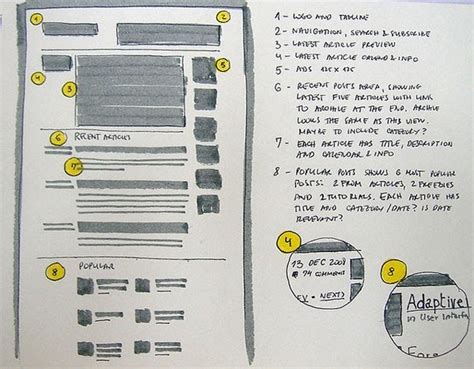 1
2
3
4
5
6
RECENT ARTICLES
7
8
POPULAR
1 - LOGO AND TAGLINE
2 - NAVIGATION, SEARCH & SUBSCRIBE
3 - LATEST ARTICLE PREVIEW
4 - LATEST ARTICLE CALENDAR & INFO
5 - ADS 125 X 125
6 - RECENT POSTS AREA, SHOWING
LATEST FIVE ARTICLES WITH LINK
TO ARCHIVE AT THE END. ARCHIVE
LOOKS THE SAME AS THIS VIEW.
MAYBE TO INCLUDE CATEGORY?
7 - EACH ARTICLE HAS TITLE, DESCRIPTION
AND CALENDAR & INFO
8 - POPULAR POSTS SHOWS 6 MOST POPULAR
POSTS: 2 FROM ARTICLES, 2 FREEBIES
AND 2 TUTORIALS. EACH ARTICLE HAS
TITLE AND CATEGORY/DATE? IS DATE
RELEVANT?
4
13 DEC 2008
74 COMMENT
EV • NEXT>
8
Adaptive
in User Interfa